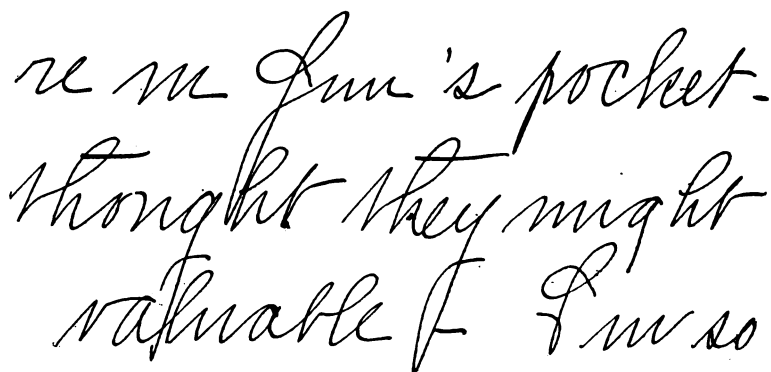 re in Jim's pocket-
thought they might
valuable I'm so